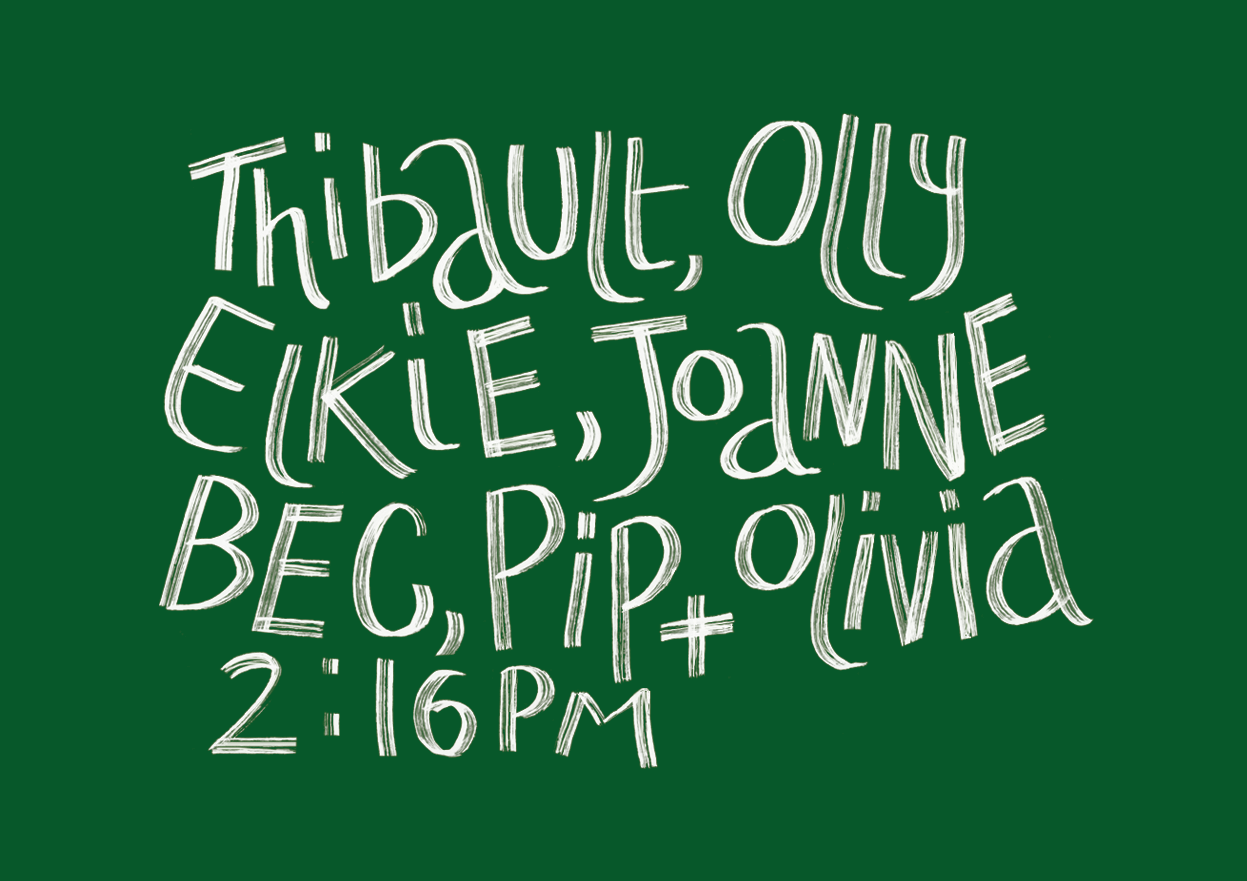 Thibault, Olly
ElkiE, JoaNNE
BEC, Pip + Olivia
2:16PM